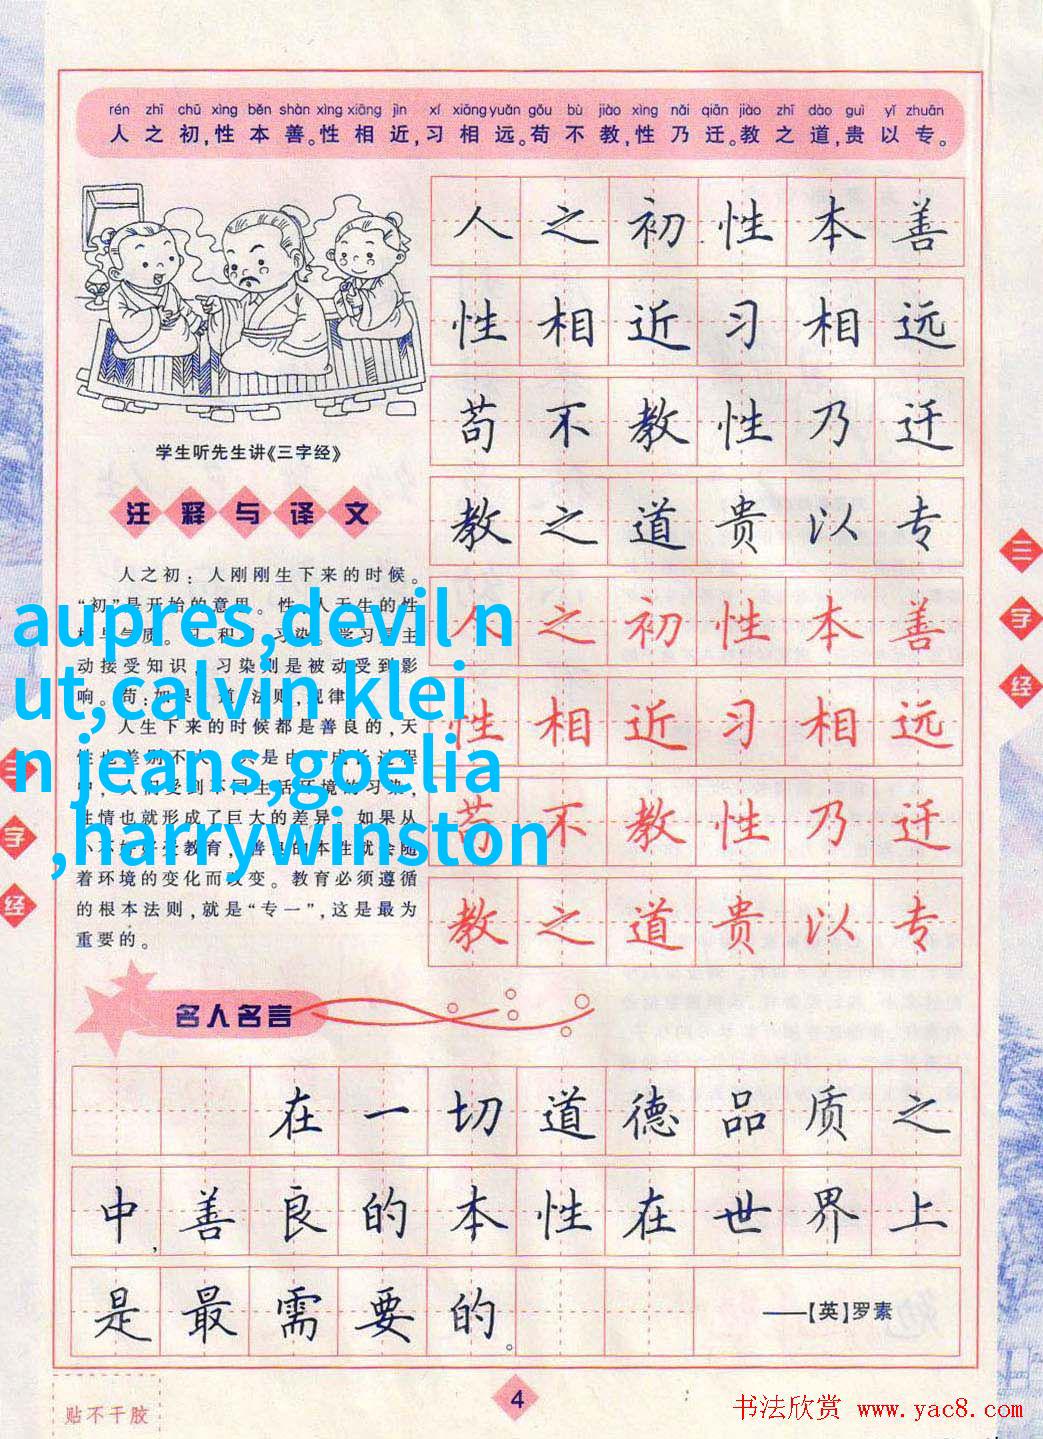 rén zhī chū xìng běn shàn xìng xiāng jìn xí xiāng yuǎn gǒu bù jiào xìng nǎi qiān jiào zhī dào guì yǐ zhuān
人之初,性本善。性相近,习相远。苟不教,性乃迁。教之道,贵以专。
学生听先生讲《三字经》
注释与译文
人之初：人刚刚生下来的时候。
“初”是开始的意思。性：人天生的性
动接受知识，习染则是被动受到影
响。苟：如果。道：法则，规律。
人生下来的时候都是善良的，天
中，人们受到不同生活环境的习染，
性情也就形成了巨大的差异。如果从
着环境的变化而改变。教育必须遵循
的根本法则，就是“专一”，这是最为
重要的。
aupres,devil n
ut,calvin klei
n jeans,goelia
,harrywinston
人之初性本善
性相近习相远
苟不教性乃迁
教之道贵以专
人之初性本善
性相近习相远
苟不教性乃迁
教之道贵以专
三字经
三字经
名人名言
在一切道德品质之
中,善良的本性在世界上
是最需要的。
——【英】罗素
4
贴不干胶
书法欣赏 www.yac8.com